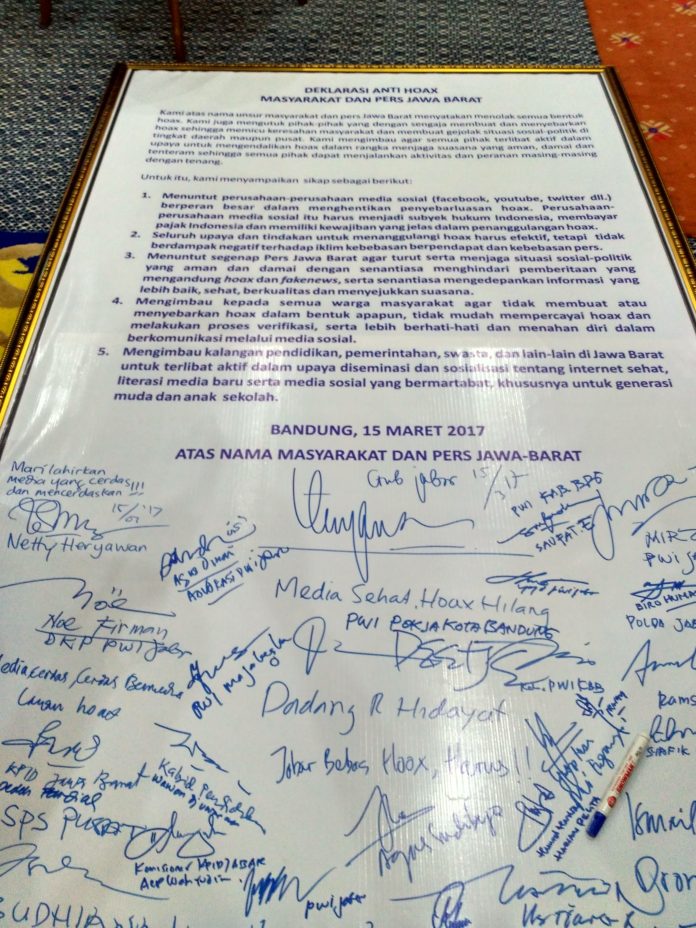 DEKLARASI ANTI HOAX
MASYARAKAT DAN PERS JAWA BARAT
Kami atas nama unsur masyarakat dan pers Jawa Barat menyatakan menolak semua bentuk
hoax. Kami juga mengutuk pihak-pihak yang dengan sengaja membuat dan menyebarkan
hoax sehingga memicu keresahan masyarakat dan membuat gejolak situasi sosial-politik di
tingkat daerah maupun pusat. Kami mengimbau agar semua pihak terlibat aktif dalam
upaya untuk mengendalikan hoax dalam rangka menjaga suasana yang aman, damai dan
tenteram sehingga semua pihak dapat menjalankan aktivitas dan peranan masing-masing
dengan tenang.
Untuk itu, kami menyampaikan sikap sebagai berikut:
1. Menuntut perusahaan-perusahaan media sosial (facebook, youtube, twitter dll.)
berperan besar dalam menghentikan penyebarluasan hoax. Perusahaan-
perusahaan media sosial itu harus menjadi subyek hukum Indonesia, membayar
pajak Indonesia dan memiliki kewajiban yang jelas dalam penanggulangan hoax.
2. Seluruh upaya dan tindakan untuk menanggulangi hoax harus efektif, tetapi tidak
berdampak negatif terhadap iklim kebebasan berpendapat dan kebebasan pers.
3. Menuntut segenap Pers Jawa Barat agar turut serta menjaga situasi sosial-politik
yang aman dan damai dengan senantiasa menghindari pemberitaan yang
mengandung hoax dan fakenews, serta senantiasa mengedepankan informasi yang
lebih baik, sehat, berkualitas dan menyejukkan suasana.
4. Mengimbau kepada semua warga masyarakat agar tidak membuat atau
menyebarkan hoax dalam bentuk apapun, tidak mudah mempercayai hoax dan
melakukan proses verifikasi, serta lebih berhati-hati dan menahan diri dalam
berkomunikasi melalui media sosial.
5. Mengimbau kalangan pendidikan, pemerintahan, swasta, dan lain-lain di Jawa Barat
untuk terlibat aktif dalam upaya diseminasi dan sosialisasi tentang internet sehat,
literasi media baru serta media sosial yang bermartabat, khususnya untuk generasi
muda dan anak sekolah.
BANDUNG, 15 MARET 2017
ATAS NAMA MASYARAKAT DAN PERS JAWA-BARAT
Mari lahirkan
media yang cerdas
dan mencerdaskan!!!
Netty Heryawan
Gub jabar 15/3/17
PWI KAB BDG
Noe Firman
DKP PWI Jabar
Media Sehat, Hoax Hilang
PWI POKJA KOTA BANDUNG
PWI majalengka
Dadang R Hidayat
Lawan hoax
Jabar Bebas Hoax, Harus!!
BIRO HUMAS
POLDA JAB
KPID Jawa Barat
SPS PUSAT
Komisioner KPID JABAR
Agus Sudibyo
PWI Jabar
Ismail
SIAFIK